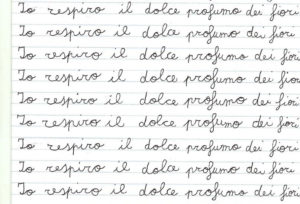 Io respiro il dolce profumo dei fiori
Io respiro il dolce profumo dei fiori
Io respiro il dolce profumo dei fiori
Io respiro il dolce profumo dei fiori
Io respiro il dolce profumo dei fiori
Io respiro il dolce profumo dei fiori
Io respiro il dolce profumo dei fiori
Io respiro il dolce profumo dei fiori